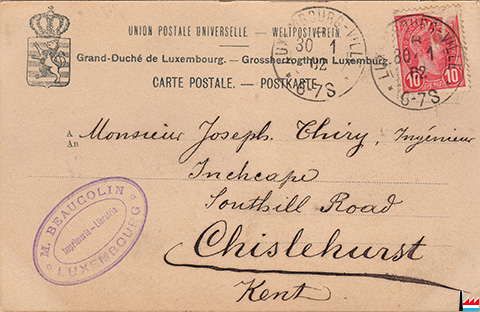 UNION POSTALE UNIVERSELLE. — WELTPOSTVEREIN.
Grand-Duché de Luxembourg. — Grossherzogthum Luxemburg.
CARTE POSTALE. — POSTKARTE.
LUXEMBOURG-VILLE
30 1
02
6-7S
LUXEMBOURG-VILLE
30 1
02
6-7S
10 10
A
An
Monsieur Joseph Thiry, Ingénieur
Inchcape
Southill Road
Chislehurst
Kent
M. BEAUCOLIN
Imprimerie-Librairie
LUXEMBOURG